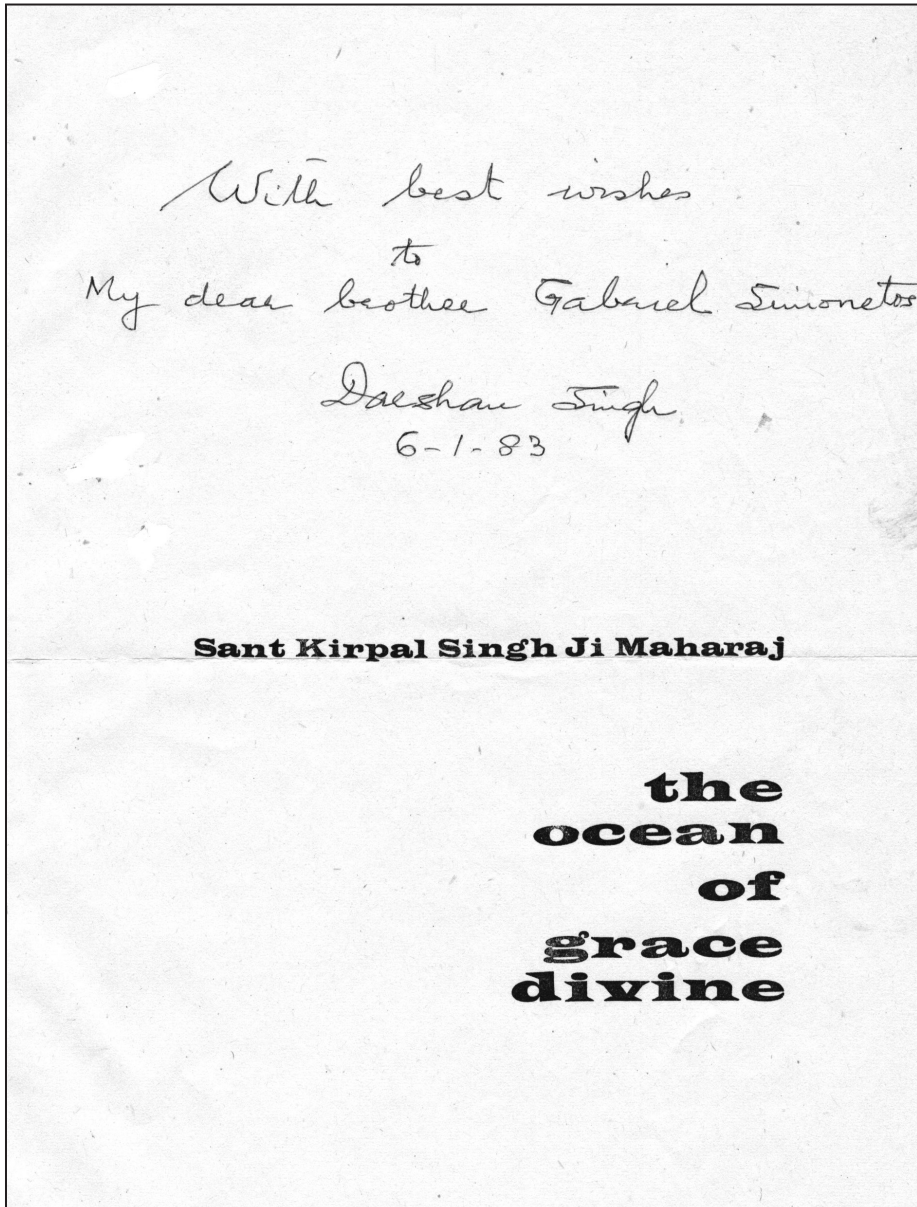 With best wishes
to
My dear brother Gabriel Simonetos
Darshan Singh
6-1-83
Sant Kirpal Singh Ji Maharaj
the
ocean
of
grace
divine